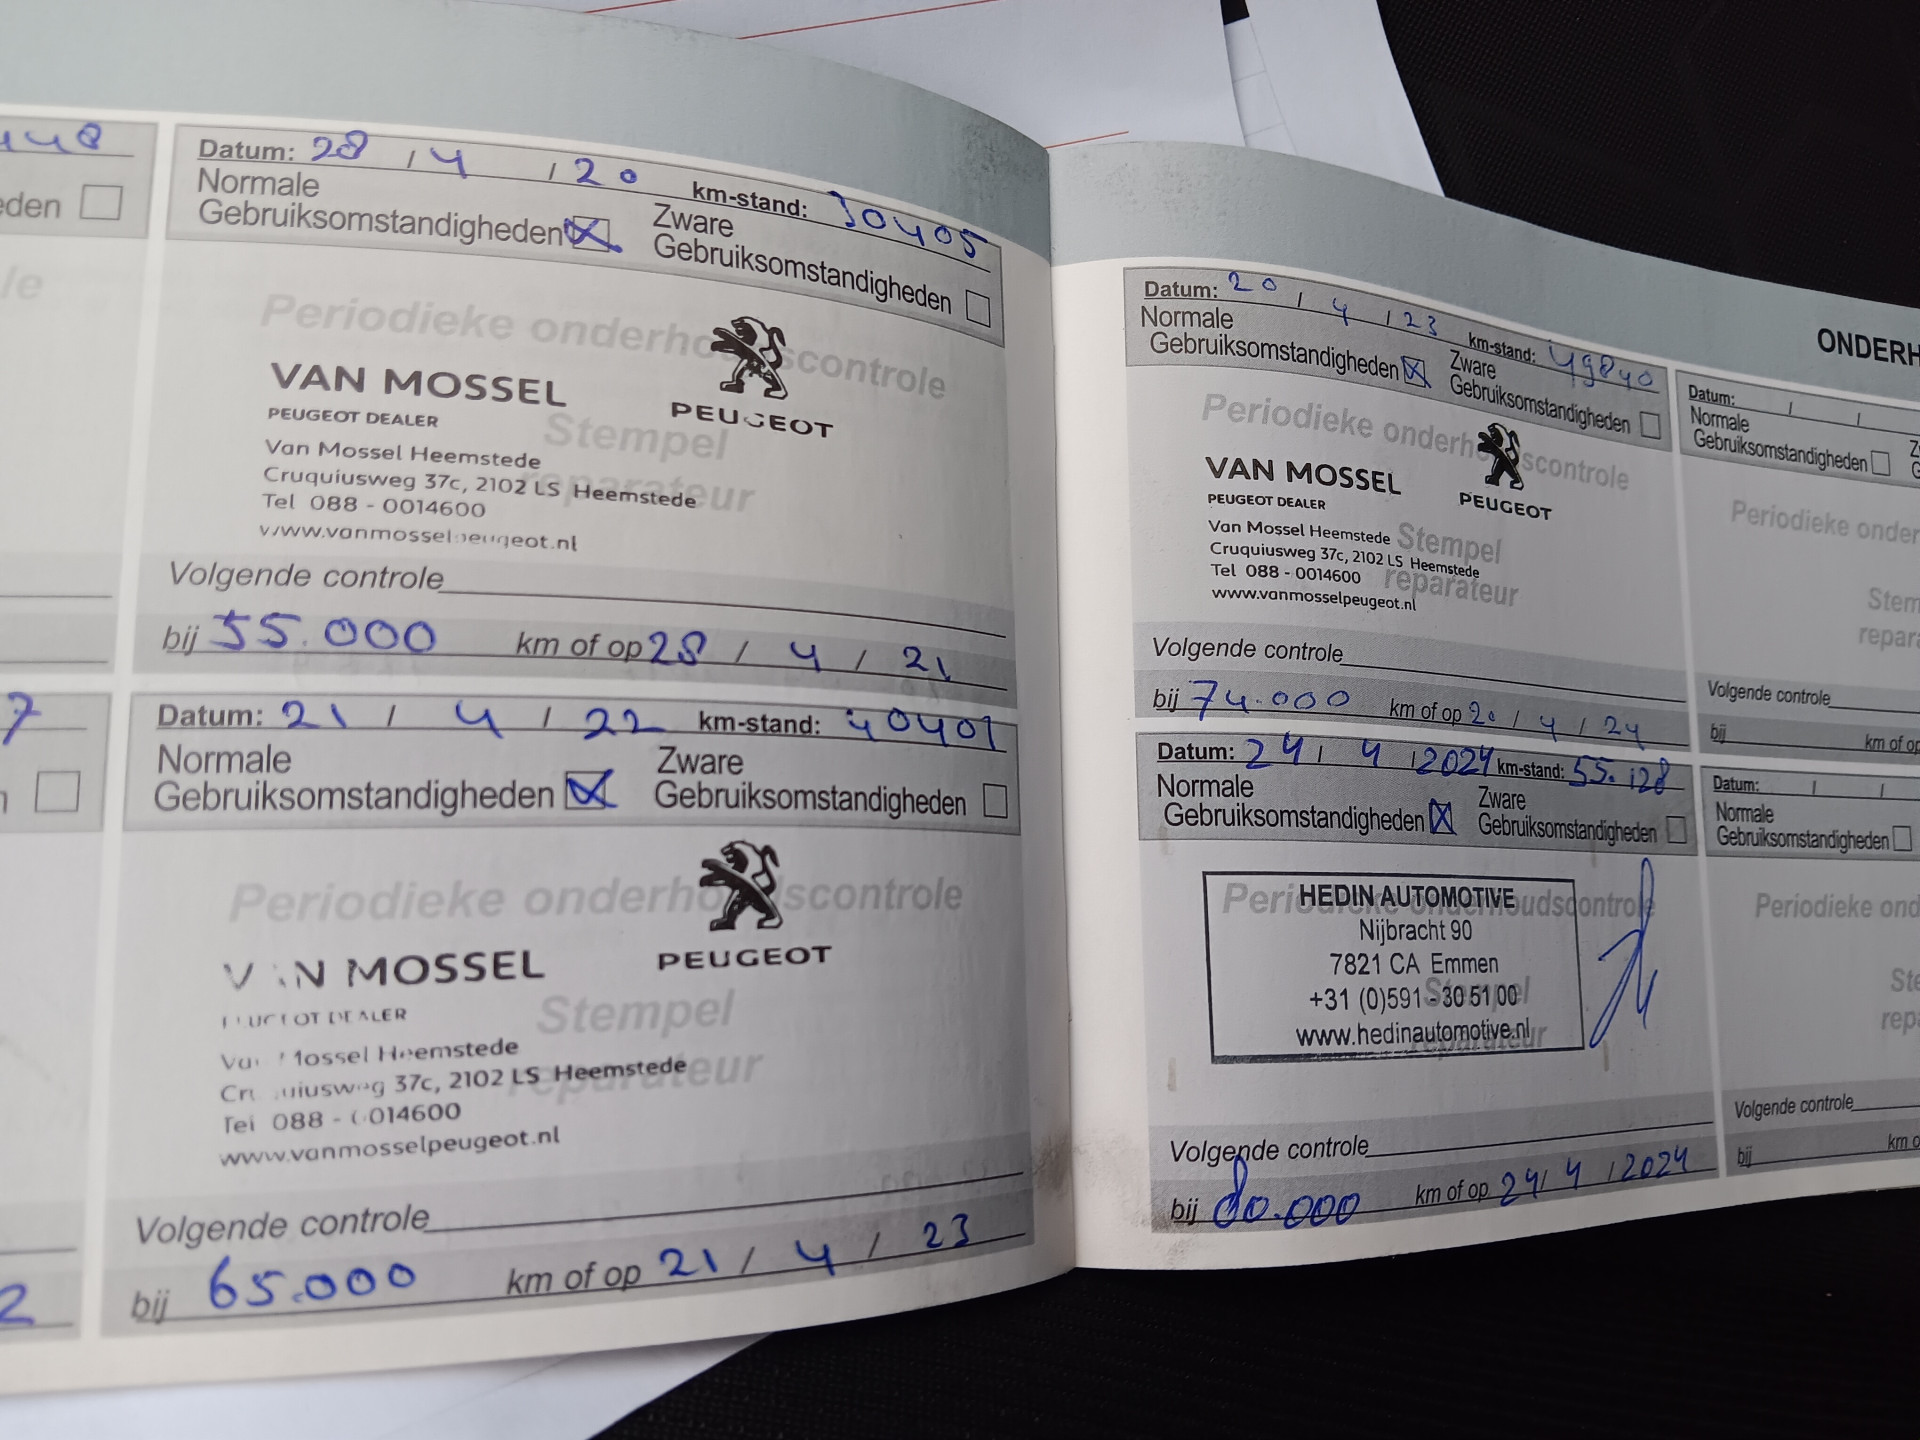 448
eden
le
7
2
Datum: 28 / 4 / 20 km-stand: 30405
Normale
Gebruiksomstandigheden
Zware
Gebruiksomstandigheden
Periodieke onderhoudscontrole
Stempel
reparateur
VAN MOSSEL
PEUGEOT DEALER
PEUGEOT
Van Mossel Heemstede
Cruquiusweg 37c, 2102 LS Heemstede
Tel 088 - 0014600
www.vanmosselpeugeot.nl
Volgende controle
bij 55.000 km of op 28 / 4 / 21
Datum: 21 / 4 / 22 km-stand: 40401
Normale
Gebruiksomstandigheden
Zware
Gebruiksomstandigheden
Periodieke onderhoudscontrole
Stempel
reparateur
VAN MOSSEL
PEUGEOT DEALER
PEUGEOT
Van Mossel Heemstede
Cruquiusweg 37c, 2102 LS Heemstede
Tel 088 - 0014600
www.vanmosselpeugeot.nl
Volgende controle
bij 65.000 km of op 21 / 4 / 23
ONDERH
Datum: 20 / 4 / 23 km-stand: 49840
Normale
Gebruiksomstandigheden
Zware
Gebruiksomstandigheden
Periodieke onderhoudscontrole
Stempel
reparateur
VAN MOSSEL
PEUGEOT DEALER
PEUGEOT
Van Mossel Heemstede
Cruquiusweg 37c, 2102 LS Heemstede
Tel 088 - 0014600
www.vanmosselpeugeot.nl
Volgende controle
bij 74.000 km of op 20 / 4 / 24
Datum: 24 / 4 / 2024 km-stand: 55.128
Normale
Gebruiksomstandigheden
Zware
Gebruiksomstandigheden
Periodieke onderhoudscontrole
Stempel
reparateur
HEDIN AUTOMOTIVE
Nijbracht 90
7821 CA Emmen
+31 (0)591 - 30 51 00
www.hedinautomotive.nl
Volgende controle
bij 80.000 km of op 24 / 4 / 2024
Datum: / /
Normale
Gebruiksomstandigheden
Z
G
Periodieke onder
Stem
repara
Volgende controle
bij km of op
Datum: / /
Normale
Gebruiksomstandigheden
Periodieke ond
Ste
rep
Volgende controle
bij km o